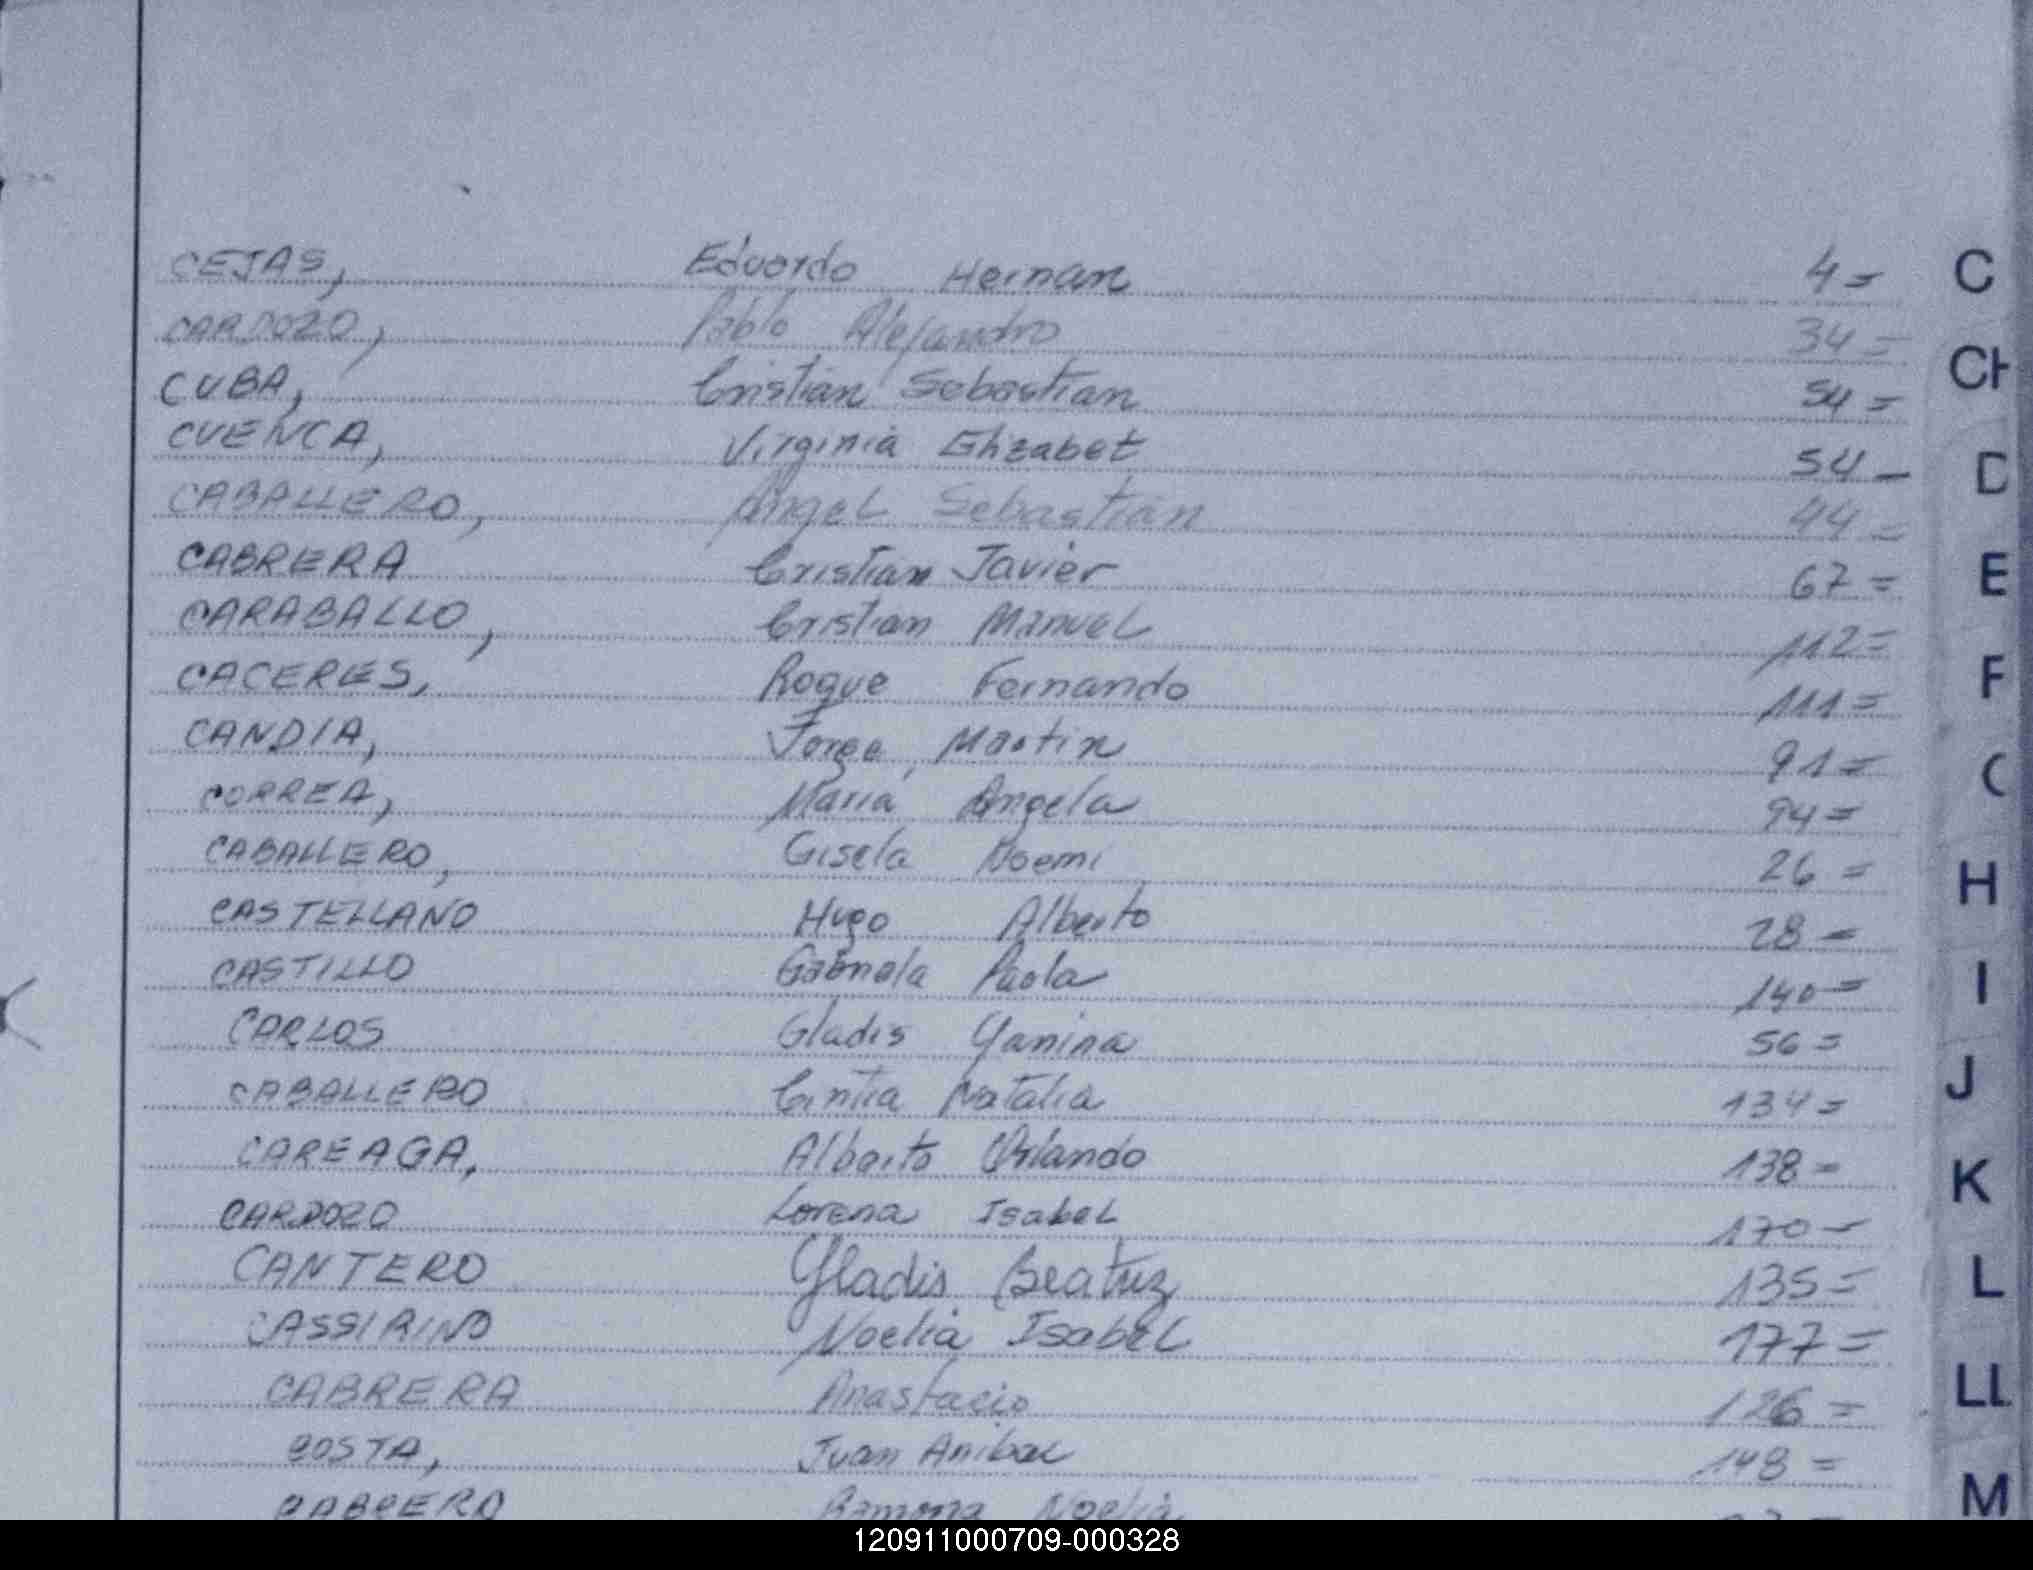 CEJAS, Eduardo Hernan 4=
CARDOZO, Pablo Alejandro 34=
CUBA, Cristian Sebastian 54=
CUENCA, Virginia Elizabet 54-
CABALLERO, Angel Sebastian 44=
CABRERA Cristian Javier 67=
CARABALLO, Cristian Manuel 112=
CACERES, Roque Fernando 111=
CANDIA, Jorge, Martin 91=
CORREA, Maria Angela 94=
CABALLERO, Gisela Noemi 26=
CASTELLANO Hugo Alberto 28=
CASTILLO Gabriela Paola 140=
CARLOS Gladis Yanina 56=
CABALLERO Cintia Natalia 134=
CAREAGA, Alberto Orlando 138=
CARDOZO Lorena Isabel 170=
CANTERO Gladis Beatriz 135=
CASSIRINO Noelia Isabel 177=
CABRERA Anastacio 126=
COSTA, Juan Anibal 148=
Ramona Noelia
C
CH
D
E
F
H
I
J
K
L
LL
M
120911000709-000328